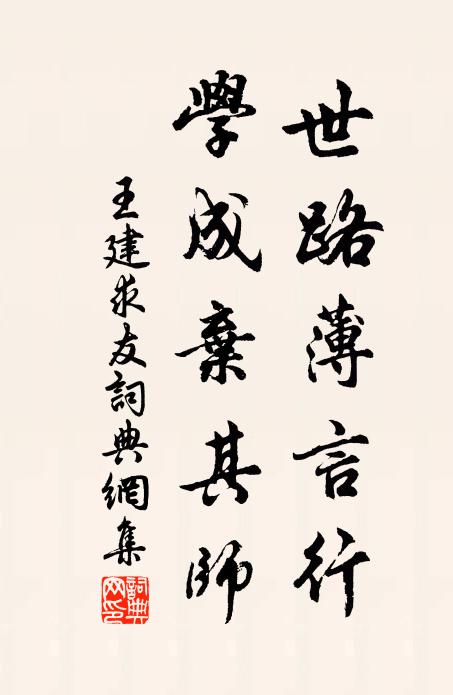 世路薄言行
學成棄其師
王建求友詞典網集
詞典网印